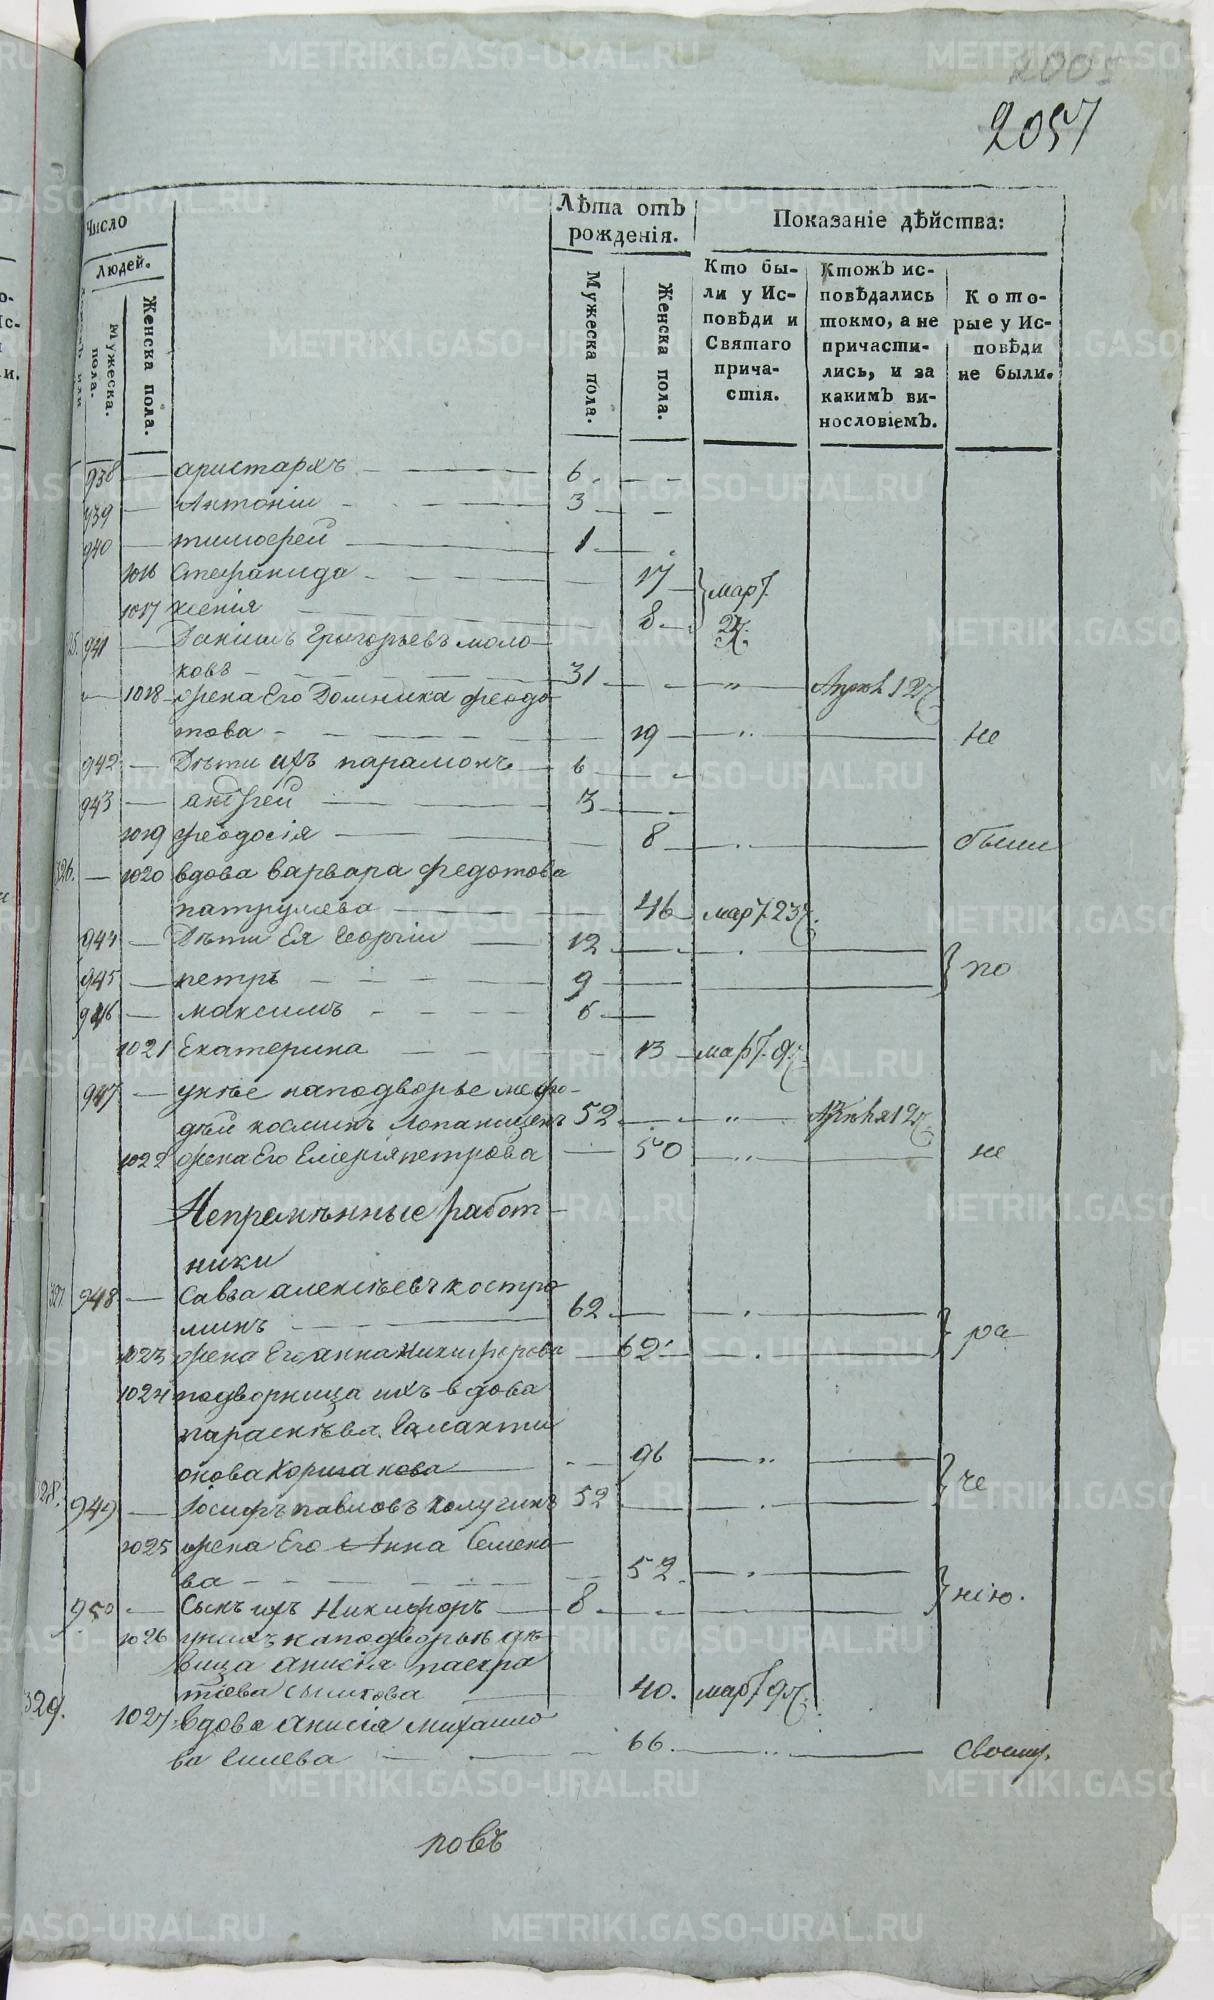 2005
2057
Число
Людей.
Мужеска. пола.
Женска пола.
Лѣта отъ рожденія.
Мужеска пола.
Женска пола.
Показаніе дѣйства:
Кто бы-
ли у Ис-
повѣди и
Святаго
прича-
стія.
Ктожъ ис-
повѣдались
токмо, а не
причасти-
лись, и за
какимъ ви-
нословіемъ.
Кото-
рые у Ис-
повѣди
не были.
938 — аристархъ 6
939 — Антоніи 3
940 — тимофей 1
1016 Стефанида 17 март.
1017 ксенія 8 27.
941 — Даніилъ Григорьевъ моло-
ковъ 31 " 12
1018 жена Его Домника феодо-
това 29 " не
942 — Дѣти ихъ парамонъ 6
943 — андрей 3
1019 феодосія 8 были
326. — 1020 вдова варвара федотова
патрушева 46 март. 23
944 — Дѣти Ея Георгіи 12
945 — петръ 9 по
946 — максимъ 6
1021 Екатерина 13 март. 9
947 — унѣе наподворье мефо-
дѣй космин 52 " 12
1022 жена Его петрова 50 " не
Непремѣнные работ-
ники
327 948 — Савва алексѣевъ костро
минъ 62
1023 жена Его анна никифорова 62 ра
1024 подворница ихъ вдова
параскѣва Галакти
онова 96 "
328. 949 — Іосифъ павловъ калугинъ 52 че
1025 жена Его Анна Семено-
ва 52
950 — Сынъ ихъ Никифоръ 8 нію.
1026 унихъ наподворьѣ дѣ-
вица анисія панкра
това 40. март 9
329. 1027 вдова анисія михаило
ва 66 своему.
повѣ
METRIKI.GASO-URAL.RU